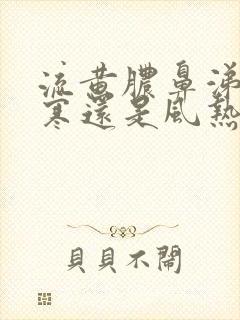 流黄膿鼻涕
寒還是風熱
貝貝不鬧